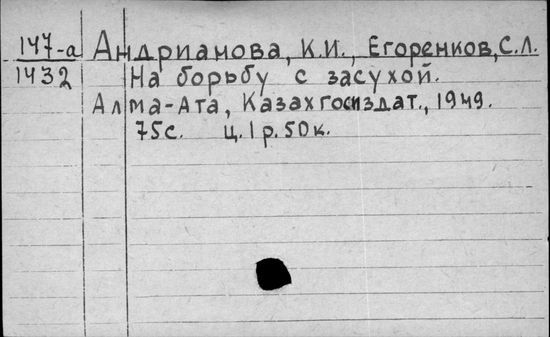 147-а Андрианова, К.И., Егоренков, С.Л.
1432 На борьбу с засухой.
Алма-Ата, Казахгосиздат., 1949.
75с. ц. 1 р. 50к.